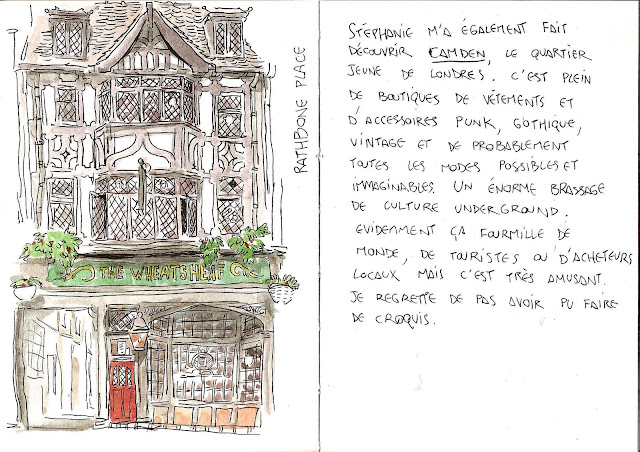 THE WHEATSHEAF
RATHBONE PLACE
STÉPHANIE M'A ÉGALEMENT FAIT
DÉCOUVRIR CAMDEN, LE QUARTIER
JEUNE DE LONDRES. C'EST PLEIN
DE BOUTIQUES DE VÊTEMENTS ET
D'ACCESSOIRES PUNK, GOTHIQUE,
VINTAGE ET DE PROBABLEMENT
TOUTES LES MODES POSSIBLES ET
IMMAGINABLES. UN ÉNORME BRASSAGE
DE CULTURE UNDERGROUND.
EVIDEMMENT ÇA FOURMILLE DE
MONDE, DE TOURISTES OU D'ACHETEURS
LOCAUX MAIS C'EST TRÈS AMUSANT.
JE REGRETTE DE PAS AVOIR PU FAIRE
DE CROQUIS.